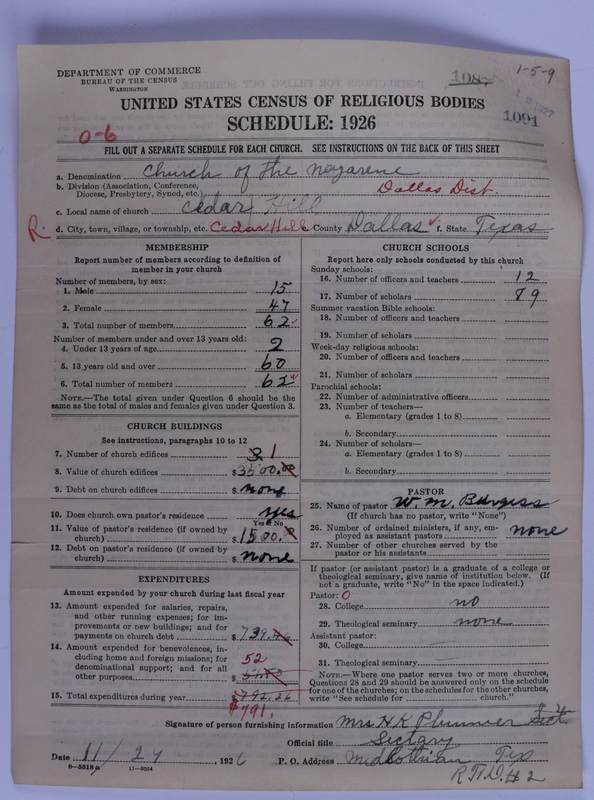 DEPARTMENT OF COMMERCE
BUREAU OF THE CENSUS
WASHINGTON
1-5-9
1091
UNITED STATES CENSUS OF RELIGIOUS BODIES
SCHEDULE: 1926
0-6
FILL OUT A SEPARATE SCHEDULE FOR EACH CHURCH. SEE INSTRUCTIONS ON THE BACK OF THIS SHEET
a. Denomination Church of the Nazarene
b. Division (Association, Conference, Diocese, Presbytery, Synod, etc.) Dallas Dist.
c. Local name of church Cedar Hill
R. d. City, town, village, or township, etc. Cedar Hill County Dallas f. State Texas
MEMBERSHIP
Report number of members according to definition of member in your church
Number of members, by sex:
1. Male 15
2. Female 47
3. Total number of members 62
Number of members under and over 13 years old:
4. Under 13 years of age 2
5. 13 years old and over 60
6. Total number of members 62
NOTE.—The total given under Question 6 should be the same as the total of males and females given under Question 3.
CHURCH BUILDINGS
See instructions, paragraphs 10 to 12
7. Number of church edifices 1
8. Value of church edifices $3500.00
9. Debt on church edifices $ none
10. Does church own pastor's residence yes
Yes or No
11. Value of pastor's residence (if owned by church) $1500.
12. Debt on pastor's residence (if owned by church) $ none
EXPENDITURES
Amount expended by your church during last fiscal year
13. Amount expended for salaries, repairs, and other running expenses; for improvements or new buildings; and for payments on church debt $ 739.46
14. Amount expended for benevolences, including home and foreign missions; for denominational support; and for all other purposes $ 52
15. Total expenditures during year $
$791.
CHURCH SCHOOLS
Report here only schools conducted by this church
Sunday schools:
16. Number of officers and teachers 12
17. Number of scholars 89
Summer vacation Bible schools:
18. Number of officers and teachers
19. Number of scholars
Week-day religious schools:
20. Number of officers and teachers
21. Number of scholars
Parochial schools:
22. Number of administrative officers
23. Number of teachers—
a. Elementary (grades 1 to 8)
b. Secondary
24. Number of scholars—
a. Elementary (grades 1 to 8)
b. Secondary
PASTOR
25. Name of pastor W. M. Burgess
(If church has no pastor, write "None")
26. Number of ordained ministers, if any, employed as assistant pastors none
27. Number of other churches served by the pastor or his assistants
If pastor (or assistant pastor) is a graduate of a college or theological seminary, give name of institution below. (If not a graduate, write "No" in the space indicated.)
Pastor: 0
28. College no
29. Theological seminary none
Assistant pastor:
30. College
31. Theological seminary
NOTE.—Where one pastor serves two or more churches, Questions 28 and 29 should be answered only on the schedule for one of the churches; on the schedules for the other churches, write "See schedule for church."
Signature of person furnishing information Mrs H K Plummer
Official title Sectary
Date 11/24, 1926 P. O. Address Midlothian Tex
R.F.D. #2
8—5518 a 11—9024